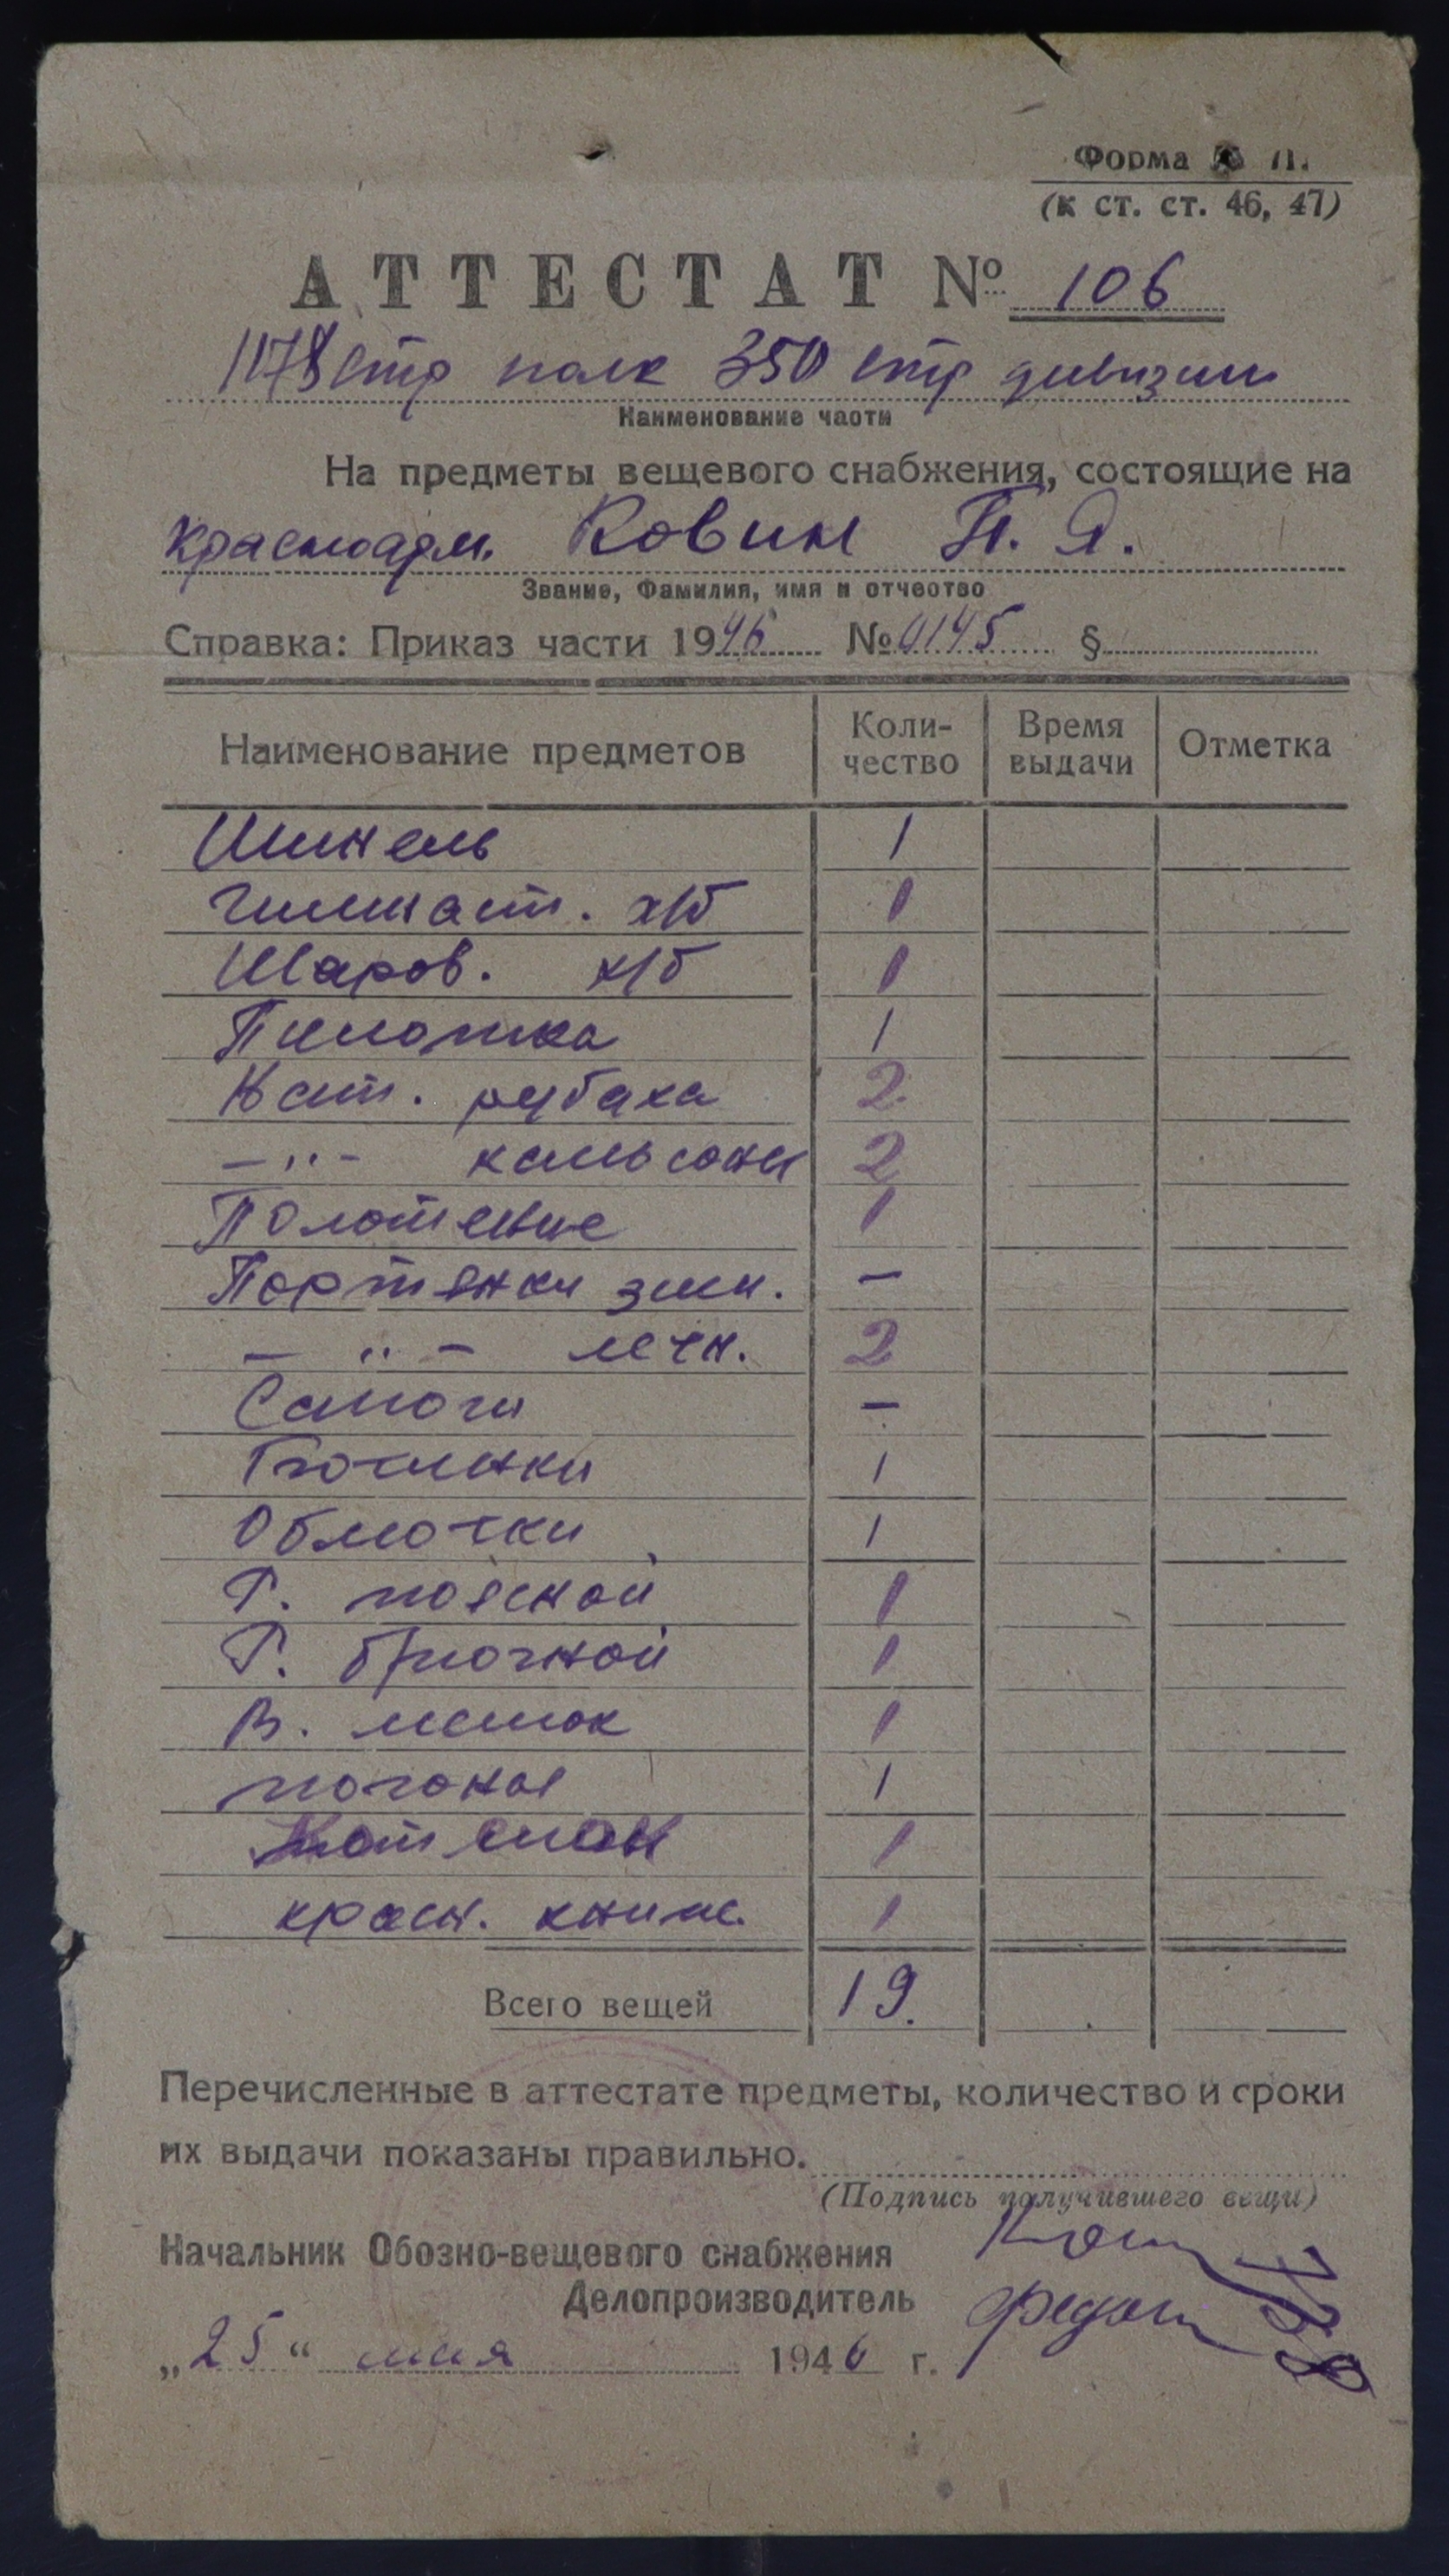 Форма № 11.
(к ст. ст. 46, 47)
АТТЕСТАТ № 106
1178 стр полк 350 стр дивизии
Наименование части
На предметы вещевого снабжения, состоящие на
красноарм. Ковин П. Я.
Звание, Фамилия, имя и отчество
Справка: Приказ части 1946 № 0145 §
Наименование предметов Коли-чество Время выдачи Отметка
Шинель 1
Гимнаст. х/б 1
Шаров. х/б 1
Пилотка 1
Нат. рубаха 2
-"- кальсоны 2
Полотенце 1
Портянки зим. –
- " - летн. 2
Сапоги –
Ботинки 1
Обмотки 1
Р. поясной 1
Р. брючной 1
В. мешок 1
погоны 1
Котелок 1
красн. книж. 1
Всего вещей 19.
Перечисленные в аттестате предметы, количество и сроки
их выдачи показаны правильно.
(Подпись получившего вещи)
Начальник Обозно-вещевого снабжения
Делопроизводитель
„25“ мая 1946 г.